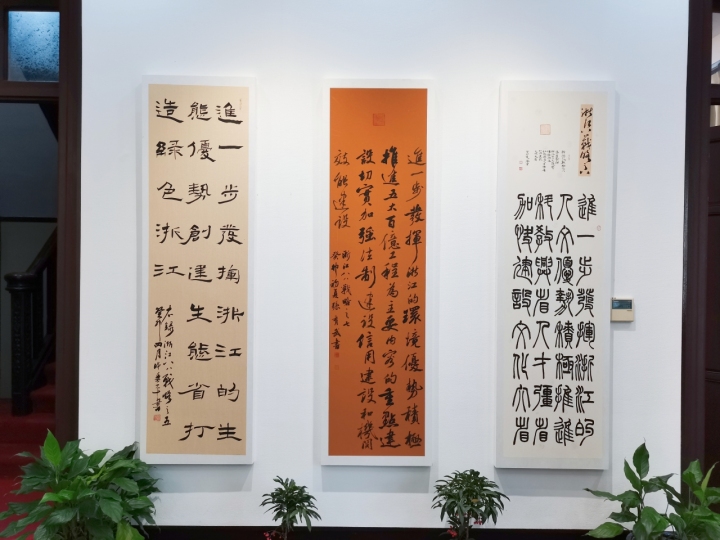 進一步發掘浙江的生
態優勢創建生態省打
造綠色浙江
右錄浙江八八戰略之五
癸卯四月
書
進一步發揮浙江的環境優勢積極
推進五大百億工程為主要內容的重點建
設切實加強法制建設信用建設和機關
效能建設
浙江八八戰略之七
癸卯初夏張
書
進一步發揮浙江的
人文優勢積極推進
科教興省人才彊省
加快建設文化大省